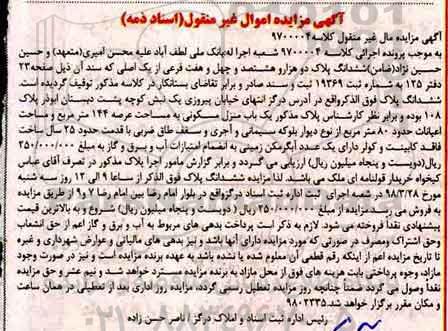 آگهی مزایده اموال غیر منقول(اسناد ذمه)
آگهی مزایده مال غیر منقول کلاسه ۹۷۰۰۰۰۴
به موجب پرونده اجرائی کلاسه ۹۷۰۰۰۰۴ شعبه اجرا له بانک ملی لطف آباد علیه محسن امیری(متعهد) و حسین
حسین نژاد(ضامن)ششدانگ پلاک دو هزارو هشتصد و چهل و هفت فرعی از یک اصلی که سند آن ذیل صفحه ۲۳
دفتر ۱۲۵ به شماره ۱۹۳۶۹ ثبت و سند صادر و برابر تقاضای بستانکار در کلاسه مذکور توقیف گردیده است.
ششدانگ پلاک فوق الذکرواقع در آدرس درگز انتهای خیابان پیروزی یک نبش کوچه پشت دبستان ابوذر پلاک
۱۰۸ بوده و برابر نظر کارشناس پلاک مذکور یک باب منزل مسکونی به مساحت عرصه ۱۴۴ متر مربع و مساحت
اعیانات حدود ۸۰ متر مربع از نوع دیوار بلوکه سیمانی و آجری و سقف طاق ضربی با قدمت حدود ۲۵ سال ساخت
فاقد کابینت و کولر دارای یک عدد آبگرمکن زمینی به انضمام امتیازات آب و برق و گاز به مبلغ ۲۵۰/۰۰۰/۰۰۰
ریال(دویست و پنجاه میلیون ریال) ارزیابی می گردد و برابر گزارش مامور اجرا پلاک مذکور در تصرف آقای عباس
کیخواه خریدار قولنامه ای ملک می باشد. لذا مزایده ششدانگ پلاک فوق الذکر از ساعا ۹ الی ۱۲ روز سه شنبه
مورخ ۹۸/۳/۲۸ در شعبه اجرای ثبت اداره ثبت اسناد درگزواقع در بلوار امام رضا بین امام رضا ۷ و۹ از طریق مزایده
به فروش می رسد.مزایده از مبلغ ۲۵۰/۰۰۰/۰۰۰ ریال ( دویست و پنجاه میلیون ریال) شروع و به بالاترین قیمت
پیشنهادی نقداً فروخته می شود. لازم به ذکر است پرداخت بدهی های مربوط به آب و برق و گاز اعم از حق انشعاب
وحق اشتراک ومصرف در صورتی که مورد مزایده دارای آنها باشد و نیز بدهی های مالیاتی و عوارض شهرداری و غیره
تا تاریخ مزایده اعم از اینکه رقم قطعی آن معلوم شده یا نشده باشد به عهده برنده مزایده است و نیز در صورت وجود
مازاد، وجوه پرداختی بابت هزینه های فوق از محل مازاد به برنده مزایده مسترد خواهد شد و نیم عشر و حق مزایده
نقداً وصول می گردد ضمناً چنانچه روز مزایده تعطیل رسمی گردد، مزایده روز اداری بعد از تعطیلی در همان ساعت
و مکان مقرر برگزار خواهد شد.۹۸۰۲۳۳۵
رئیس اداره ثبت اسناد و املاک درگز / ناصر حسن زاده